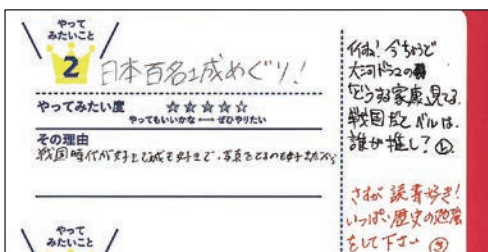 やって
みたいこと
2 日本百名城めぐり!
やってみたい度 ☆☆☆☆☆
やってもいいかな ⟷ ぜひやりたい
その理由
戦国時代が好きで城も好きで、写真をとるのも好きだから
やって
みたいこと
今ちょうど
大河ドラマの
どうする家康見てる.
戦国だと
誰か推し?
さすが 読書好き!
いっぱい歴史の勉強
をして下さい